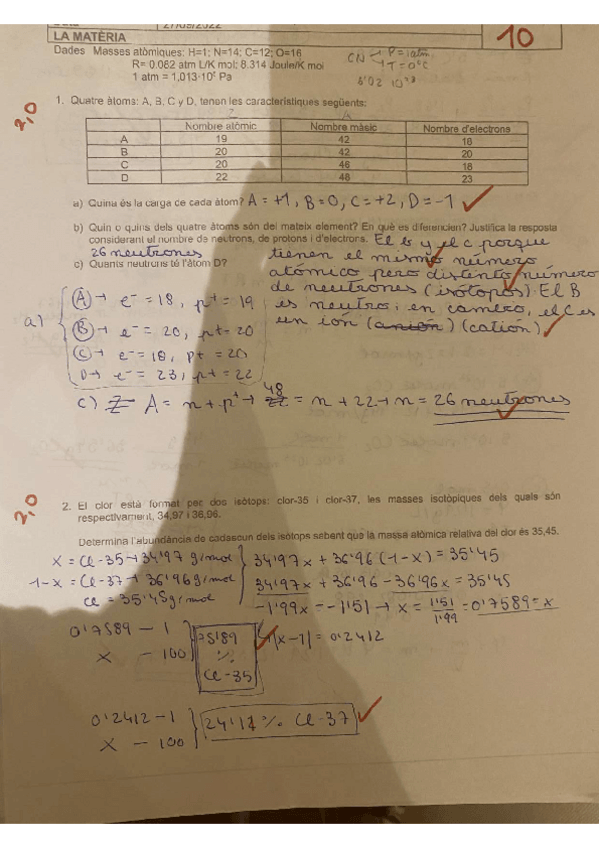 27/05/2022
LA MATÈRIA
10
Dades Masses atòmiques: H=1; N=14; C=12; O=16
R= 0.082 atm L/K mol; 8.314 Joule/K mol
1 atm = 1,013·10⁵ Pa
CN → P = 1 atm
T = 0°C
6'02 10²³
2,0
1. Quatre àtoms: A, B, C y D, tenen les característiques següents:
Z A
Nombre atòmic Nombre màsic Nombre d'electrons
A 19 42 18
B 20 42 20
C 20 48 18
D 22 48 23
a) Quina és la carga de cada àtom? A = +1, B = 0, C = +2, D = -1
b) Quin o quins dels quatre àtoms són del mateix element? En què es diferencien? Justifica la resposta
considerant el nombre de neutrons, de protons i d'electrons. El B y el C porque
26 neutrones tienen el mismo número
c) Quants neutrons té l'àtom D? atómico pero distinto número
de neutrones (isótopos). El B
es neutro; en cambio, el C es
un ión (anión) (catión)
a) A → e⁻ = 18, p⁺ = 19
B → e⁻ = 20, p+ = 20
C → e⁻ = 18, p+ = 20
D → e⁻ = 23, p+ = 22
c) Z A = n + p⁺ → 48 22 = n + 22 → n = 26 neutrones
2,0
2. El clor està format per dos isòtops: clor-35 i clor-37, les masses isotòpiques dels quals són
respectivament, 34,97 i 36,96.
Determina l'abundància de cadascun dels isòtops sabent que la massa atòmica relativa del clor és 35,45.
x = Cl-35 → 34'97 g/mol
1-x = Cl-37 → 36'96 g/mol
Cl = 35'45 g/mol
34'97x + 36'96 (1-x) = 35'45
34'97x + 36'96 - 36'96x = 35'45
-1'99x = -1'51 → x = 1'51/1'99 = 0'7589 = x
0'7589 - 1
x - 100
75'89
%
Cl-35
|x-1| = 0'2412
0'2412 - 1
x - 100
24'12 % Cl-37